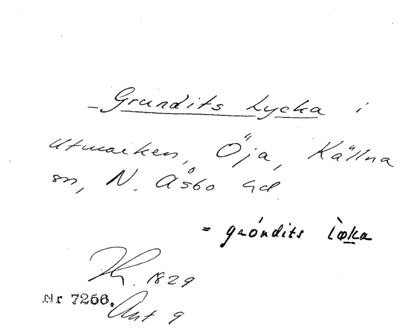 – Grundits Lycka i
Utmarken, Öja, Källna
sn, N. Åsbo hd.
= gróndits lø̀ka
1829
Nr 7256.
Akt 9